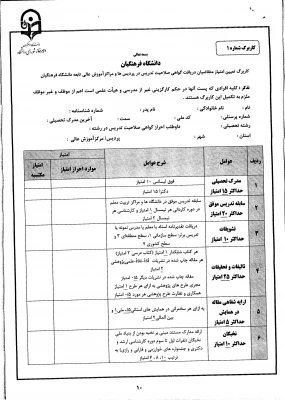 کاربرگ شماره ۱
بسمه تعالی
دانشگاه فرهنگیان
کاربرگ تعیین امتیاز متقاضیان دریافت گواهی صلاحیت تدریس در پردیس ها و مراکز آموزش عالی تابعه دانشگاه فرهنگیان
تذکر: کلیه افرادی که پست آنها در حکم کارگزینی غیر از مدرسی و هیأت علمی است اعم از موظف و غیر موظف
ملزم به تکمیل این کاربرگ هستند.
نام: نام خانوادگی: نام پدر: شماره شناسنامه:
شماره پرسنلی: کد ملی: سمت: آخرین مدرک تحصیلی:
رشته تحصیلی: داوطلب احراز گواهی صلاحیت تدریس در رشته:
استان: شهر: پردیس/ مرکز آموزش عالی:
ردیف عوامل شرح عوامل امتیاز
موارد احراز امتیاز امتیاز مکتسبه
۱ مدرک تحصیلی حداکثر ۱۵ امتیاز
فوق لیسانس ۱۰ امتیاز
دکترا ۱۵ امتیاز
۲ سابقه تدریس موفق حداکثر ۲۰ امتیاز
سابقه تدریس موفق در دانشگاه ها و مراکز تربیت معلم
در دوره کاردانی هر نیمسال ۱ امتیاز و کارشناسی هر
نیمسال ۲ امتیاز
۳ تشویقات حداکثر ۱۰ امتیاز
دریافت تقدیرنامه استاد یا معلم یا مدرس نمونه یا
تدریس برتر: سطح سازمانی ۱، سطح منطقه‌ای ۳ و
سطح کشوری
۴ تألیفات و تحقیقات حداکثر ۲۵ امتیاز
هر کتاب ۵ امتیاز (کتاب درسی ۲ امتیاز)
هر مقاله چاپ شده در نشریات علمی پژوهشی
امتیاز
هر مقاله چاپ شده در نشریات دیگر امتیاز
مجری طرح های پژوهشی به ازای هر طرح امتیاز
همکاری و نظارت طرح پژوهشی هر مورد امتیاز
۵ ارایه شفاهی مقاله در همایش حداکثر ۵ امتیاز
به ازای هر سخنرانی در همایش های استانی ملی ۱ و
بین المللی ۲ امتیاز
۶ نخبگان حداکثر ۱۰ امتیاز
ارائه مدارک مستند مبنی بر نخبه بودن از بنیاد ملی
نخبگان (نفرات اول تا سوم دوره کارشناسی ارشد و
دکتری و جشنواره های خوارزمی و فارابی و رازی) به
ترتیب ۱۰، ۸، ۶ امتیاز
۱۰